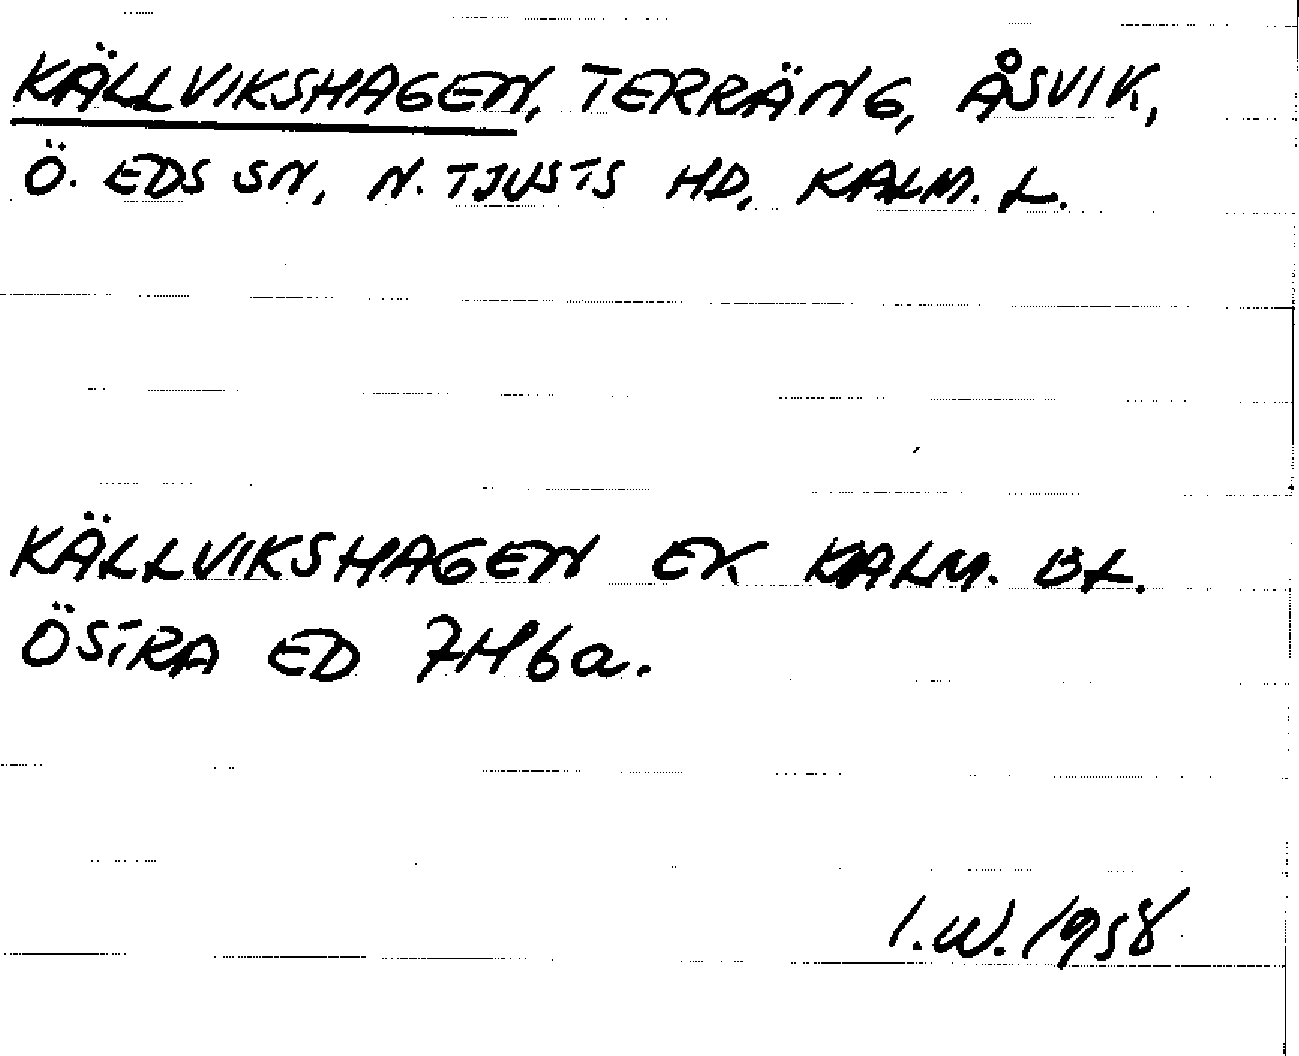 KÄLLVIKSHAGEN, TERRÄNG, ÅSVIK,
Ö. EDS SN, N. TJUSTS HD, KALM. L.
KÄLLVIKSHAGEN EK KALM. BL.
ÖSTRA ED 7H6a.
I.W. 1958